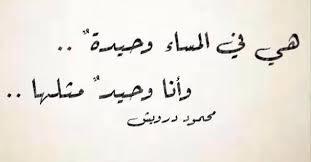 هي في المساء وحيدةٌ ..
وأنا وحيدٌ مثلها ..
محمود درويش